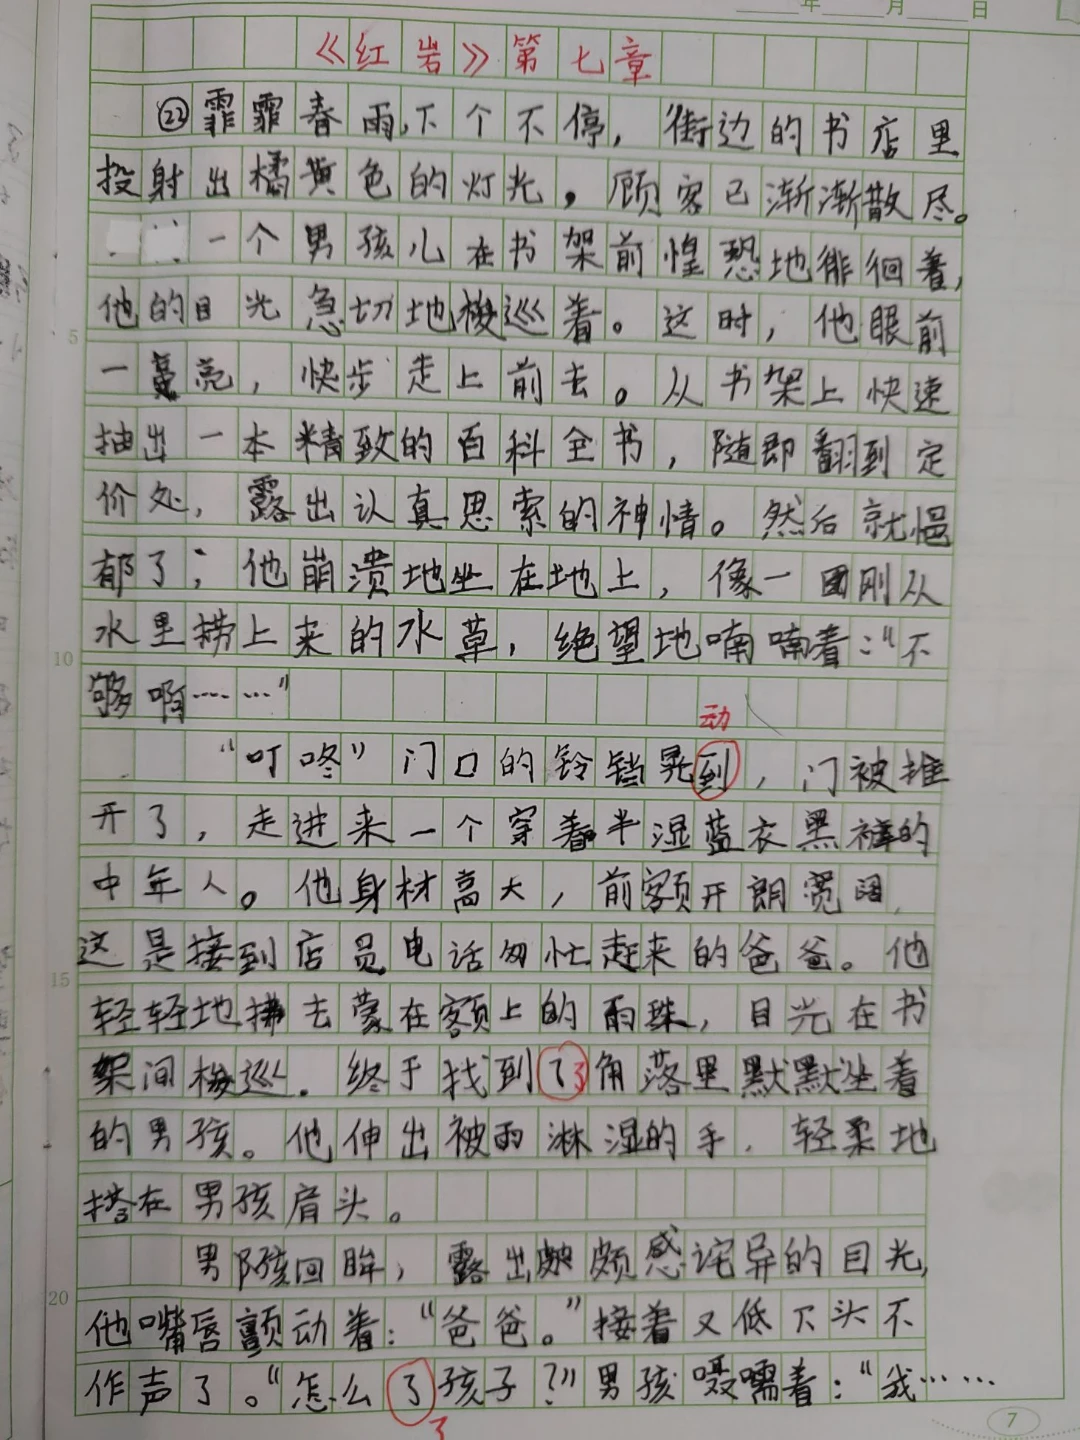 年 月 日
《红岩》第七章
㉒霏霏春雨,下个不停,街边的书店里
投射出橘黄色的灯光,顾客已渐渐散尽。
一个男孩儿在书架前惶恐地徘徊着,
他的目光急切地梭巡着。这时,他眼前
5
一亮,快步走上前去。从书架上快速
抽出一本精致的百科全书,随即翻到定
价处,露出认真思索的神情。然后就悒
郁了;他崩溃地坐在地上,像一团刚从
水里捞上来的水草,绝望地喃喃着:“不
10
够啊……”
动
“叮咚”门口的铃铛晃到,门被推
开了,走进来一个穿着半湿蓝衣黑裤的
中年人。他身材高大,前额开朗宽阔,
这是接到店员电话匆忙赶来的爸爸。他
15
轻轻地拂去蒙在额上的雨珠,目光在书
架间梭巡.终于找到了角落里默默坐着
的男孩。他伸出被雨淋湿的手.轻柔地
搭在男孩肩头。
男孩回眸,露出颇感诧异的目光,
20
他嘴唇颤动着:“爸爸。”接着又低下头不
作声了。“怎么了孩子?”男孩嗫嚅着:“我……
了
7